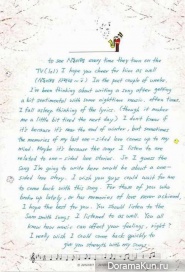 to see NTones every time they turn on the
TV (lol) I hope you cheer for him as well
In the past couple of weeks,
I've been thinking about writing a song often getting
a bit sentimental with some nighttime music. often times,
I fall asleep thinking of the lyrics. (though it makes
me a little bit tired the next day) I don't know if
it's because it's near the end of winter, but sometimes
the memories of my last one-sided love comes up to my
mind. Maybe it's because the songs I listen to are
related to one-sided love stories. So I guess the
song I'm going to write here would be about a one-
sided love story. I wish you guys could wait for me
to come back with this song. For those of you who
broke up lately, or has memories of love never achieved,
I hope the best for you. You should listen to the
Sam Smith songs I listened to as well. You all
know how music can affect your feelings, right?
I really wish I could come back quickly to
give you strength with my song.
DoramaKun.ru